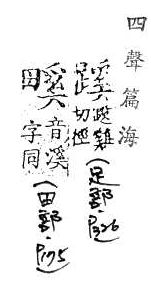 四聲篇海
雞切徑
(足部·P326)
音溪字同
(田部·P175)